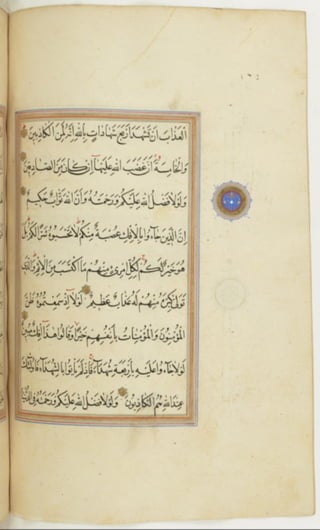 الْعَذَابَ اَنْ تَشْهَدَ اَرْبَعَ شَهَادَاتٍ بِاللّٰهِ اِنَّهُ لَمِنَ الْكَاذِبِينَ
وَالْخَامِسَةَ اَنَّ غَضَبَ اللّٰهِ عَلَيْهَا اِنْ كَانَ مِنَ الصَّادِقِينَ
وَلَوْلَا فَضْلُ اللّٰهِ عَلَيْكُمْ وَرَحْمَتُهُ وَاَنَّ اللّٰهَ تَوَّابٌ حَكِيمٌ
اِنَّ الَّذِينَ جَاءُوا بِالْاِفْكِ عُصْبَةٌ مِنْكُمْ لَا تَحْسَبُوهُ شَرًّا لَكُمْ بَلْ
هُوَ خَيْرٌ لَكُمْ لِكُلِّ امْرِئٍ مِنْهُمْ مَا اكْتَسَبَ مِنَ الْاِثْمِ وَالَّذِي
تَوَلّٰى كِبْرَهُ مِنْهُمْ لَهُ عَذَابٌ عَظِيمٌ لَوْلَا اِذْ سَمِعْتُمُوهُ ظَنَّ
الْمُؤْمِنُونَ وَالْمُؤْمِنَاتُ بِاَنْفُسِهِمْ خَيْرًا وَقَالُوا هٰذَا اِفْكٌ مُبِينٌ
لَوْلَا جَاءُوا عَلَيْهِ بِاَرْبَعَةِ شُهَدَاءَ فَاِذْ لَمْ يَاْتُوا بِالشُّهَدَاءِ فَاُولٰئِكَ
عِنْدَ اللّٰهِ هُمُ الْكَاذِبُونَ وَلَوْلَا فَضْلُ اللّٰهِ عَلَيْكُمْ وَرَحْمَتُهُ فِي الدُّنْيَا